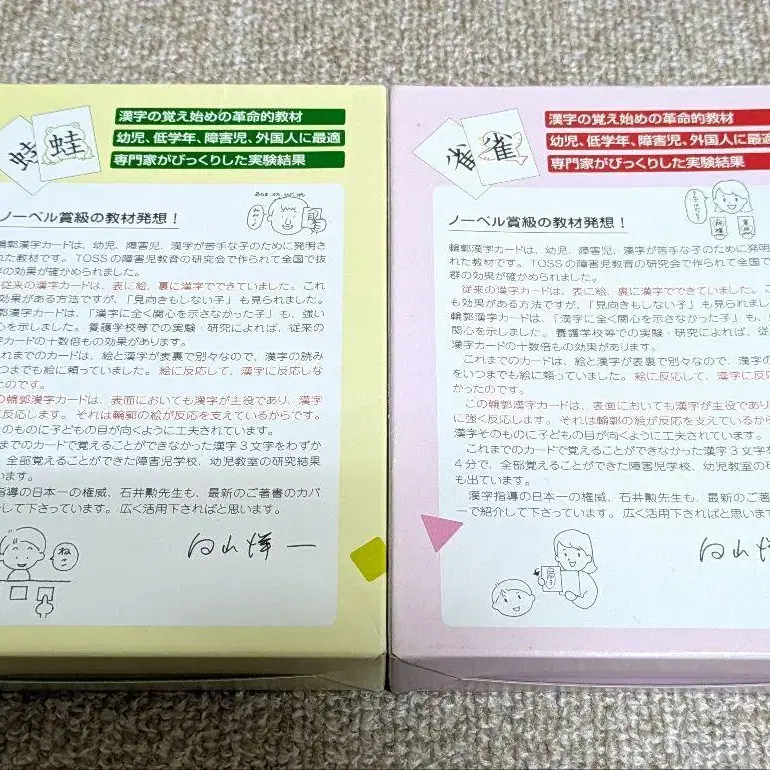 蛙
蛙
漢字の覚え始めの革命的教材
幼児、低学年、障害児、外国人に最適
専門家がびっくりした実験結果
ノーベル賞級の教材発想！
輪郭漢字カードは、幼児、障害児、漢字が苦手な子のために発明さ
た教材です。TOSSの障害児教育の研究会で作られて全国で抜
の効果が確かめられました。
従来の漢字カードは、表に絵、裏に漢字でできていました。これ
効果がある方法ですが、「見向きもしない子」も見られました。
郭漢字カードは、「漢字に全く関心を示さなかった子」も、強い
心を示しました。養護学校等での実験・研究によれば、従来の
字カードの十数倍もの効果があります。
れまでのカードは、絵と漢字が表裏で別々なので、漢字の読み
つまでも絵に頼っていました。絵に反応して、漢字に反応しな
たのです。
の輪郭漢字カードは、表面においても漢字が主役であり、漢字
反応します。それは輪郭の絵が反応を支えているからです。
そのものに子どもの目が向くように工夫されています。
までのカードで覚えることができなかった漢字３文字をわずか
、全部覚えることができた障害児学校、幼児教室の研究結果
います。
指導の日本一の権威、石井勲先生も、最新のご著書のカバ
して下さっています。広く活用下さればと思います。
ねこ
向山洋一
雀
雀
漢字の覚え始めの革命的教材
幼児、低学年、障害児、外国人に最適
専門家がびっくりした実験結果
ノーベル賞級の教材発想！
輪郭漢字カードは、幼児、障害児、漢字が苦手な子のために発明
れた教材です。TOSSの障害児教育の研究会で作られて全国で
群の効果が確かめられました。
従来の漢字カードは、表に絵、裏に漢字でできていました。こ
も効果がある方法ですが、「見向きもしない子」も見られました
輪郭漢字カードは、「漢字に全く関心を示さなかった子」も、
関心を示しました。養護学校等での実験・研究によれば、従来
漢字カードの十数倍もの効果があります。
これまでのカードは、絵と漢字が表裏で別々なので、漢字の
をいつまでも絵に頼っていました。絵に反応して、漢字に反応
かったのです。
この輪郭漢字カードは、表面においても漢字が主役であり
に強く反応します。それは輪郭の絵が反応を支えているから
漢字そのものに子どもの目が向くように工夫されています。
これまでのカードで覚えることができなかった漢字３文字を
４分で、全部覚えることができた障害児学校、幼児教室の研
も出ています。
漢字指導の日本一の権威、石井勲先生も、最新のご著
ーで紹介して下さっています。広く活用下さればと思いま
向山洋